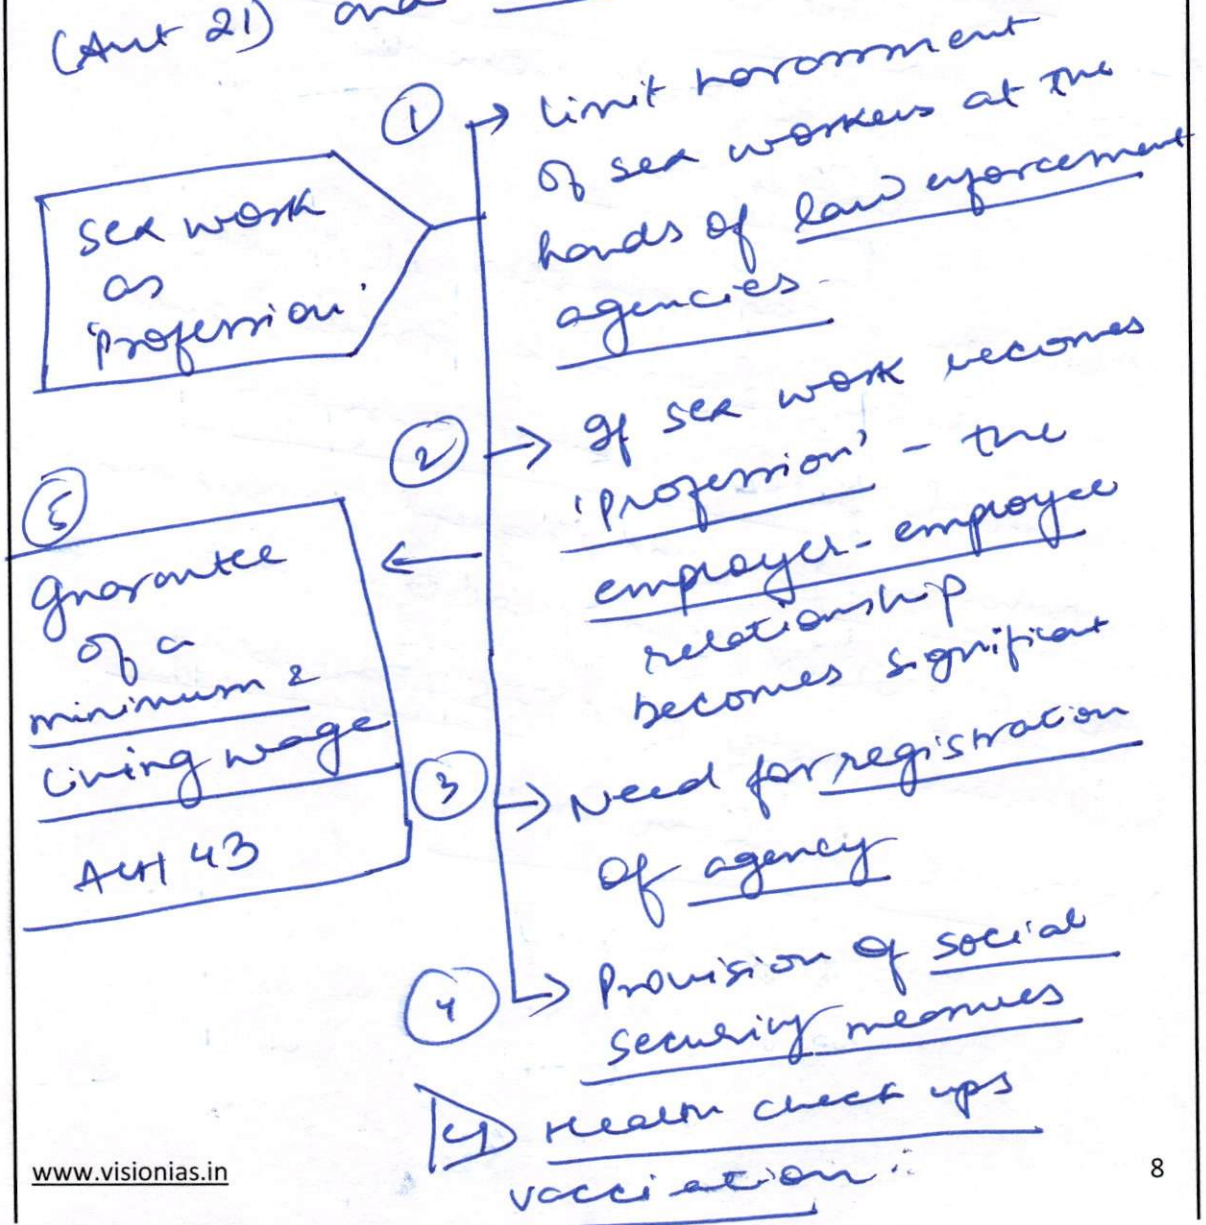 (Art 21) and
① → limit harassment
of sex workers at the
hands of law enforcement
agencies.
sex work
as
'Profession'
② → If sex work becomes
'Profession' - the
employer-employee
relationship
becomes significant
③ → Need for registration
of agency
④ → Provision of social
security measures
eg Health check ups
vacciation
⑤
guarantee
of a
minimum &
living wage
Art 43
www.visionias.in
8